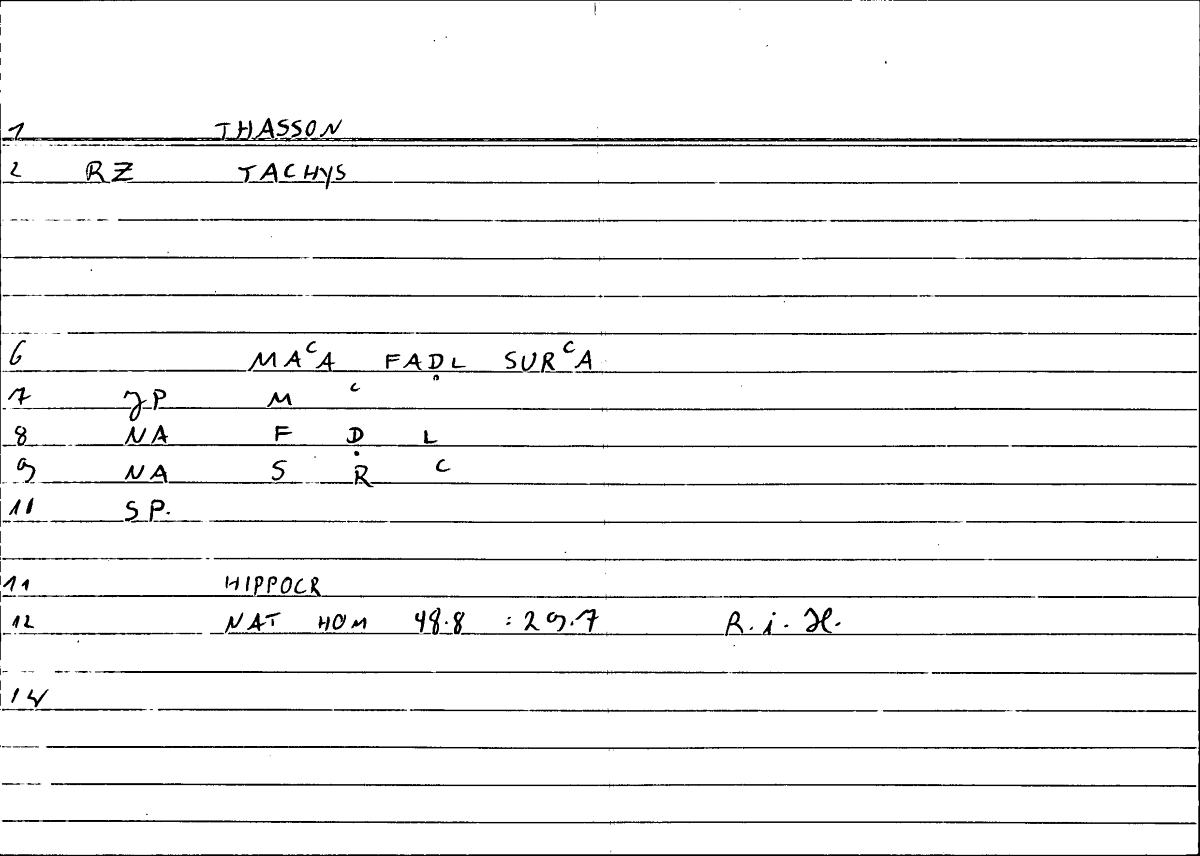 1 THASSON
2 RZ TACHYS
6 MAᶜA FAḌL SURᶜA
7 JP M ᶜ
8 NA F Ḍ L
9 NA S R ᶜ
10 SP.
11 HIPPOCR
12 NAT HOM 48.8 :29.7 R. i. H.
14